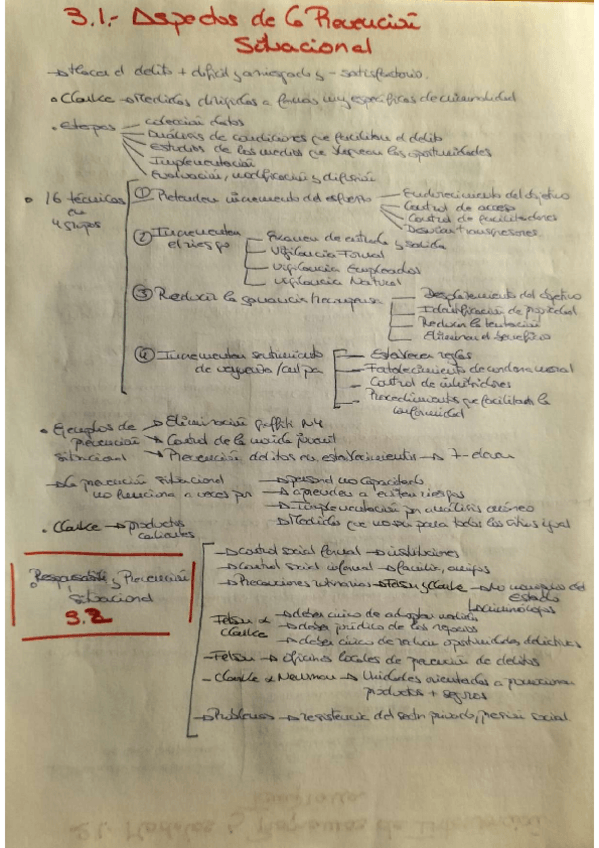 3.1.- Aspectos de la Prevención
Situacional
→ Hacer el delito + difícil y arriesgado y - satisfactorio.
• Clarke → Medidas dirigidas a formas muy específicas de criminalidad
• etapas
colección datos
Análisis de condiciones que facilitan el delito
estudios de los medios que bloquean las oportunidades
Implementación
Evaluación, modificación y difusión
• 16 técnicas
en
4 grupos
① Pretenden incremento del esfuerzo
Endurecimiento del objetivo
Control de acceso
Control de facilitadores
Desviar transgresores
② Incrementan
el riesgo
Examen de entrada y salida
Vigilancia Formal
Vigilancia Empleados
Vigilancia Natural
③ Reducir la ganancia/recompensa
Desplazamiento del objetivo
Identificación de propiedad
Reducir la tentación
Eliminar el beneficio
④ Incrementan sentimiento
de vergüenza / culpa
Establecer reglas
Fortalecimiento de condena moral
Control de inhibidores
Procedimientos que facilitan la
conformidad
• Ejemplos de
prevención
situacional
→ Eliminación graffiti NY
→ Control de la movida juvenil
→ Prevención delitos en establecimientos → 7-eleven
→ La prevención situacional
no funciona a veces por
→ personal no capacitado
→ aprenden a evitar riesgos
→ Implementación por análisis erróneo
→ Medidas que no son para todos los sitios igual
• Clarke → productos
calientes
• Responsabili y Prevención
Situacional
3.2
→ Control social formal → instituciones
→ Control social informal → familia, amigos
→ Precauciones rutinarias → Felson y Clarke → No del
Estado
→ criminólogos
Felson &
Clarke
→ deber cívico de adoptar medidas
→ deber jurídico de los negocios
→ deber cívico de reducir oportunidades delictivas
- Felson → oficinas locales de prevención de delitos
- Clarke & Newman → Unidades orientadas a promocionar
productos + seguros
→ Problemas → resistencia del sector privado, presión social